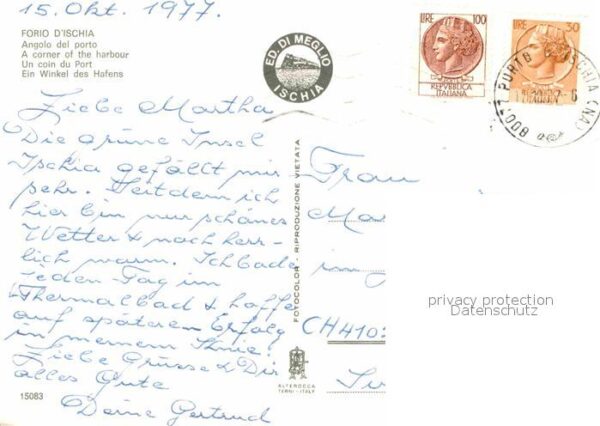 15. Okt. 1977.
FORIO D'ISCHIA
Angolo del porto
A corner of the harbour
Un coin du Port
Ein Winkel des Hafens
ED. DI MEGLIO
ISCHIA
LIRE 100
REPVBBLICA
ITALIANA
LIRE 50
Liebe Martha
Die grüne Insel
Ischia gefällt mir
sehr. Seitdem ich
hier bin nur schönes
Wetter & noch herr-
lich warm. Ich bade
jeden Tag im
Thermalbad & hoffe
auf späteren Erfolg
in meinem Knie.
Liebe Grüsse & Dir
alles Gute
Deine Gertrud
15083
FOTOCOLOR - RIPRODUZIONE VIETATA
ALTEROCCA
TERNI - ITALY
Frau
Mar
CH 410
privacy protection
Datenschutz